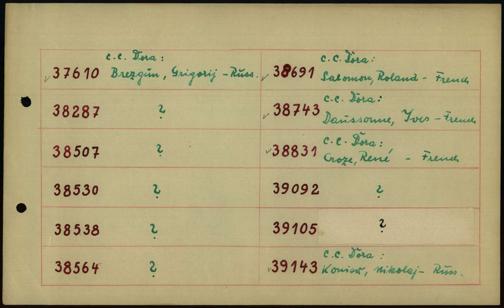 c.c. Dora:
37610 Brezgun, Grigorij - Russ.
38287 ?
38507 ?
38530 ?
38538 ?
38564 ?
c.c. Dora:
38691 Salomon, Roland - French
c.c. Dora:
38743 Daussonne, Yves - French
c.c. Dora:
38831 Croze, René - French
39092 ?
39105 ?
c.c. Dora:
39143 nikolaj - Russ.